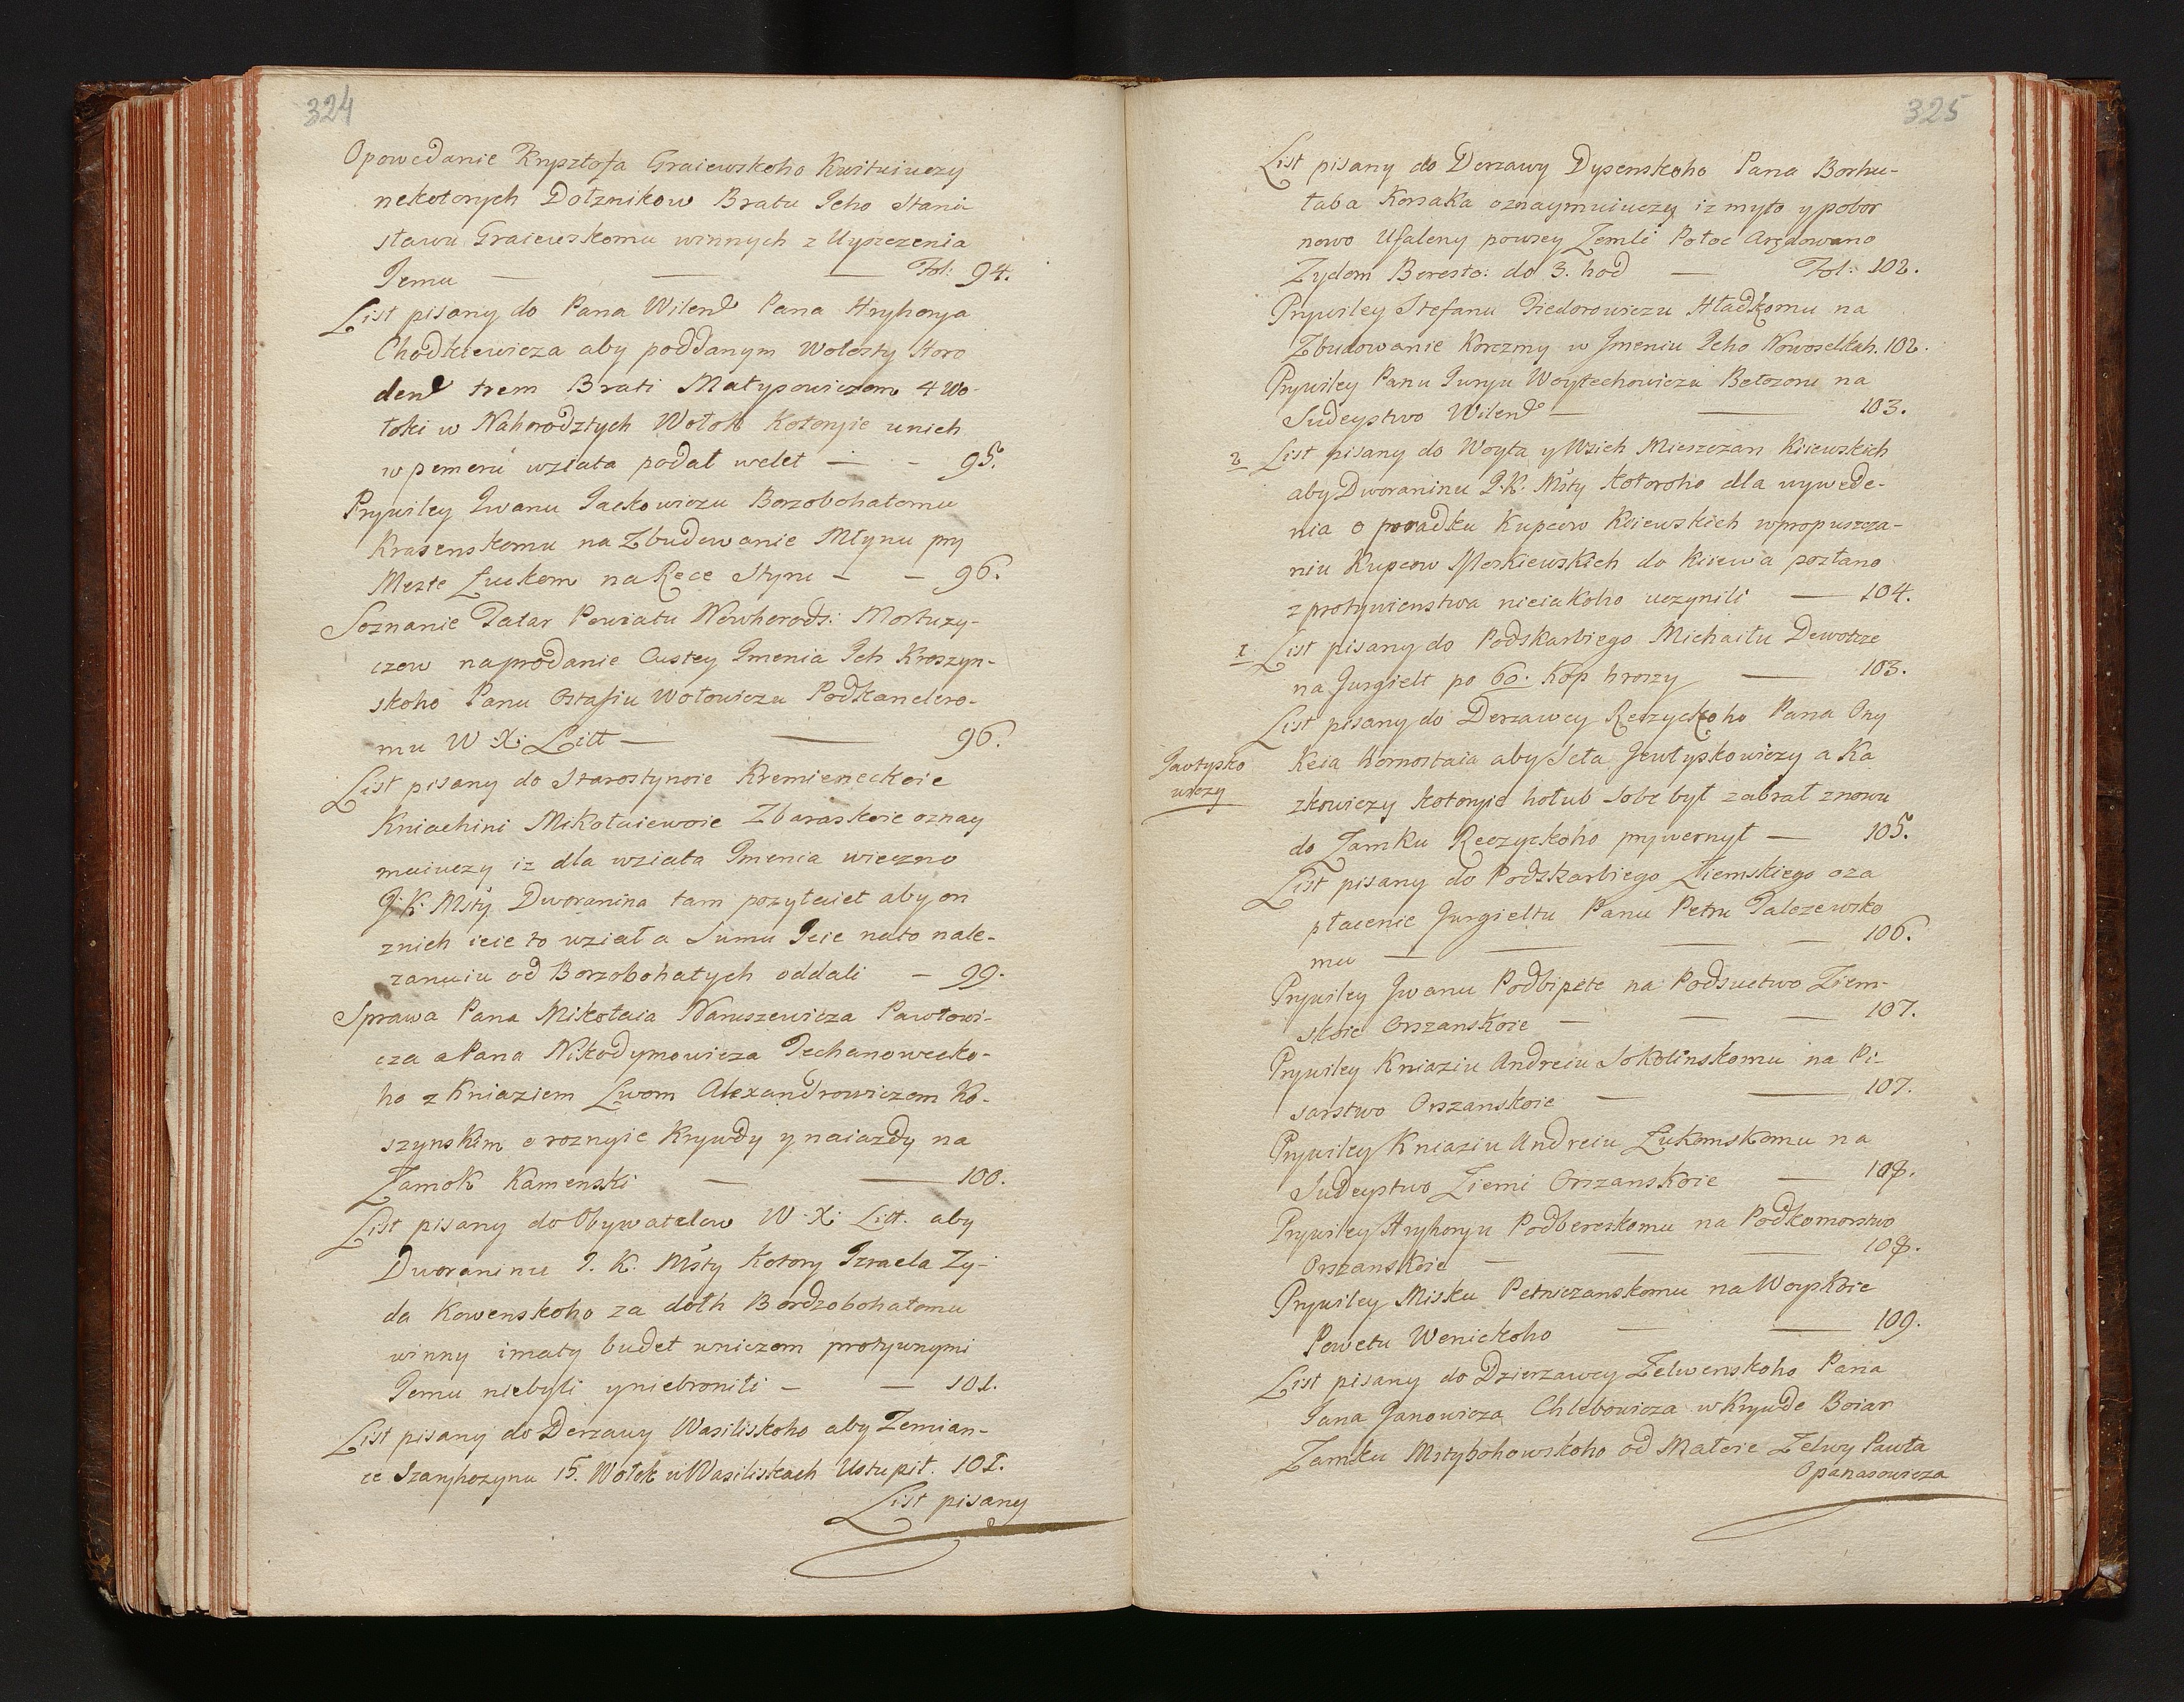 324
Opowedanie Krysztofa Graiewskoho Kwituiuczy
nekotorych Dołznikow Bratu Jeho Stani
sławu Graiewskomu winnych z Uyszczenia
Jemu — — — Fol: 94.
List pisany do Pana Wilend Pana Hryhorya
Chodkiewicza aby poddanym Wołosty Horo
dend trem Brati Matypowiczom 4 Wo-
łoki w Nahorodztych Wołok Kotoryie unich
w pemeru wziata podał welet — - 95.
Prywiley Iwanu Jackowiczu Borzobohatomu
Krasenskomu na Zbudowanie Młynu pry
Meste Łuckom na Rece Styru — — 96.
Soznanie Tatar Powiatu Nowhorods: Mortuzy-
czow naprodanie Custey Imenia Ich Kroszyn-
skoho Panu Ostafiu Wołowiczu Podkanclero-
mu W. X. Litt — — 96.
List pisany do Starostynoie Kremieneckoie
Kniachini Mikołaiewoie Zbaraskoie oznay
muiuczy iz dla wziata Imenia wieczno
J. K. Msty Dworanina tam pozyłaiet aby on
znich icie to wział a Sumu Jeie nato nale-
zanuiu od Borzobohatych oddali — 99.
Sprawa Pana Mikołaia Naruszewicza Pawłowi-
cza a Pana Nikodymowicza Jechanowecko-
ho z Kniaziem Lwom Alexandrowiczom Ko-
szynskim o roznyie Krywdy y naiazdy na
Zamok Kamenski — — 100.
List pisany do Obywatelow W. X. Litt. aby
Dworaninu J. K. Msty Kotory Izraela Zy-
da Kowenskoho za dołh Bordzobohatomu
winny imaty budet wniczom protywnymi
Jemu niebyli yniebronili — — 101.
List pisany do Derzawy Wasiliskoho aby Zemian-
ce Szaryhozynu 15. Wołok w Wasiliskach Ustupił. 101.
List pisany
325
List pisany do Derzawy Dysenskoho Pana Borhu-
łaba Korsaka oznaymuiuczy iz myto y pobor
nowo Ufaleny powsey Zemli Połoc Arędowano
Zydom Beresto: do 3. hod — Fol: 102.
Prywiley Stefanu Fiedorowiczu Hładkomu na
Zbudowanie Korczmy w Jmeniu Jeho Nowosełkah. 102.
Prywiley Panu Juryu Woytechowiczu Bełozoru na
Sudeystwo Wilend — — 103.
2 List pisany do Woyta y Wsich Mieszczan Kiiewskich
aby Dworaninu J. K. Msty kotoroho dla wywede-
nia o poradku Kupcow Kiiewskich w propuszcza-
niu Kupcow Moskiewskich do Kiiewa posłano
z protywienstwa niciakoho uczynili — 104.
1 List pisany do Podskarbiego Michaiłu Dewotcze
na Jurgielt po 60. Kop hroszy — 103.
List pisany do Derzawcy Reczyckoho Pana Ony
Jawtysko
wiczy
Keia Hornostaia aby Seła Jewtyskowiczy a Ka
zkowiczy kotoryie hołub Sobe był zabrał znowu
do Zamku Reczyckoho prywernył — 105.
List pisany do Podskarbiego Ziemskiego oza
płacenie Jurgieltu Panu Petru Jalczewsko
mu — — — — 106.
Prywiley Jwanu Podbipete na Podsuctwo Ziem-
skoie Orszanskoie — — — 107.
Prywiley Kniaziu Andreiu Sokolinskomu na Pi-
sarstwo Orszanskoie — — 107.
Prywiley Kniaziu Andreiu Łukomskomu na
Sudeystwo Ziemi Orszanskoie — 108.
Prywiley Hryhoryu Podbereskomu na Podkomorstwo
Orszanskoie — — — 108.
Prywiley Misku Petniczanskomu na Woyskoie
Powetu Wenickoho — — 109.
List pisany do Dzierzawcy Zelwenskoho Pana
Jana Janowicza Chlebowicza w Krywde Boiar
Zamku Mstybohowskoho od Matoie Zelwy Pawła
Opanasowicza